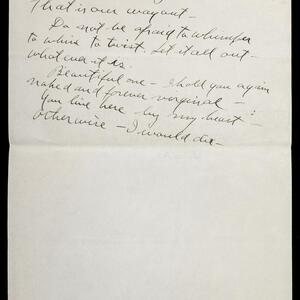 That is our way out —
Do not be afraid to whimper
to whine to twist. Let it all out —
whatever it is.
Beautiful one — I hold you again
naked and forever virginal —
You live here by my heart —
otherwise — I would die —